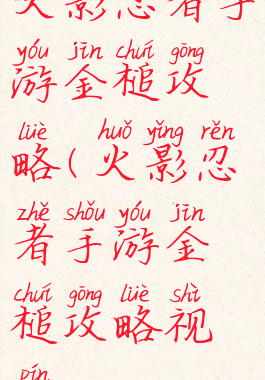 火影忍者手
yóu jīn chuí gōng
游金槌攻
lüè huǒ yǐng rěn
略(火影忍
zhě shǒu yóu jīn
者手游金
chuí gōng lüè shì
槌攻略视
pín